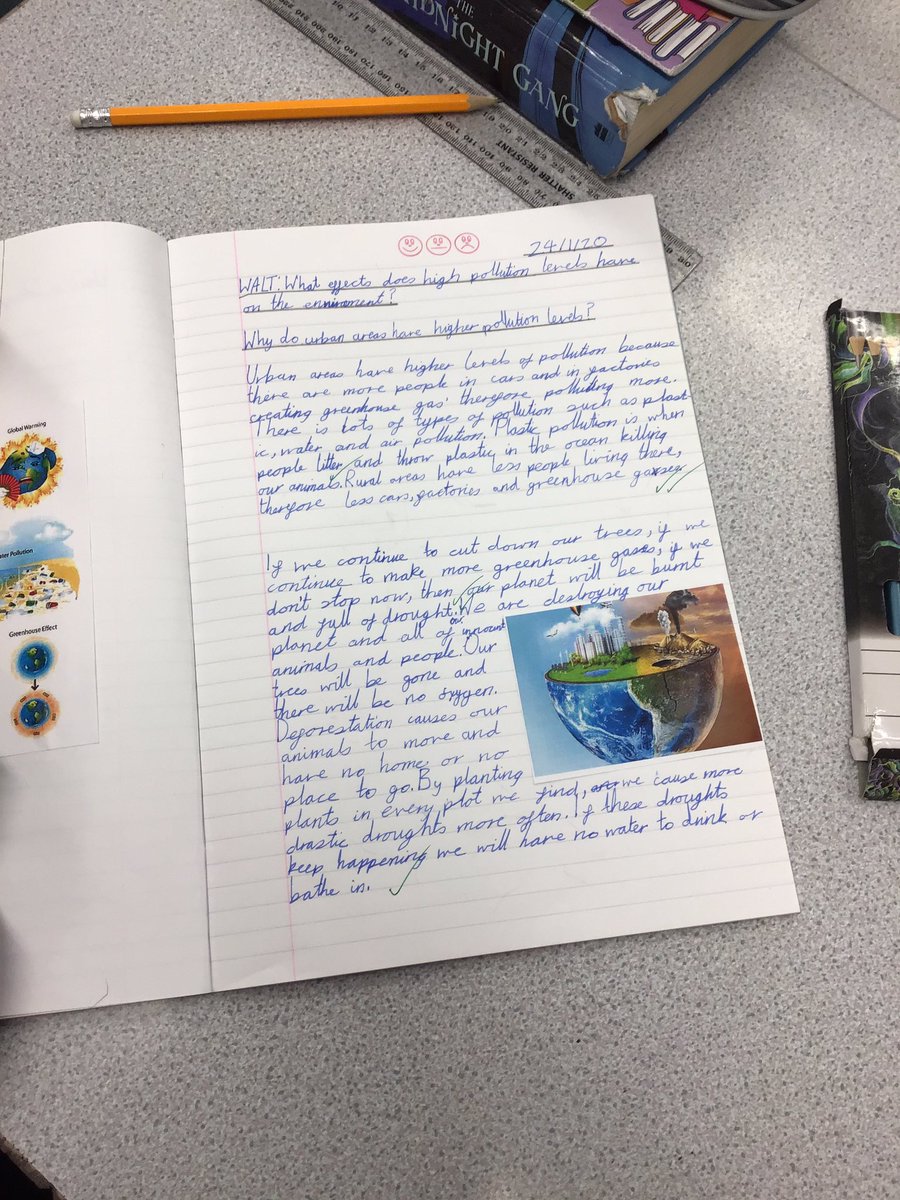 THE
MIDNIGHT
GANG
SHATTER RESISTANT
24/1/20
WALT: What effects does high pollution levels have
on the enviroment?
Why do urban areas have higher pollution levels?
Urban areas have higher levels of pollution because
there are more people in cars and in factories
creating greenhouse gas' therefore polluting more.
There is lots of types of pollution such as plast-
ic, water and air pollution. Plastic pollution is when
people litter and throw plastic in the ocean killing
our animals. Rural areas have less people living there,
therefore less cars, factories and greenhouse gasses.
If we continue to cut down our trees, if we
continue to make more greenhouse gases, if we
don't stop now, then our planet will be burnt
and full of drought. We are destroying our
planet and all of our innocent
animals and people. Our
trees will be gone and
there will be no oxygen.
Deforestation causes our
animals to move and
have no home or no
place to go. By planting
plants in every plot we find, we cause more
drastic droughts more often. If these droughts
keep happening we will have no water to drink or
bathe in.
Global Warming
ter Pollution
Greenhouse Effect